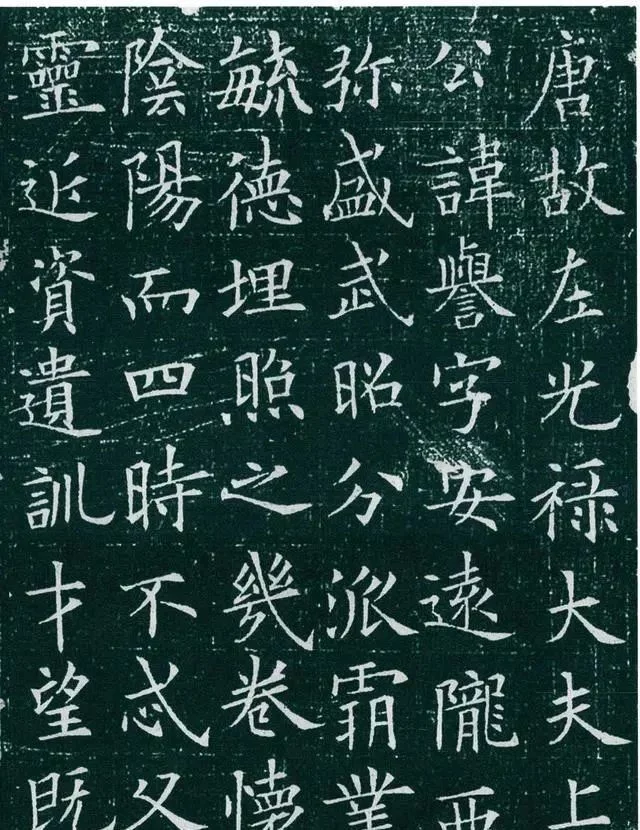 唐故左光禄大夫上
公諱譽字安遠隴西
弥盛武昭分派霸業
毓徳埋照之幾卷懐
陰陽而四時不忒父
靈近資遺訓才望既